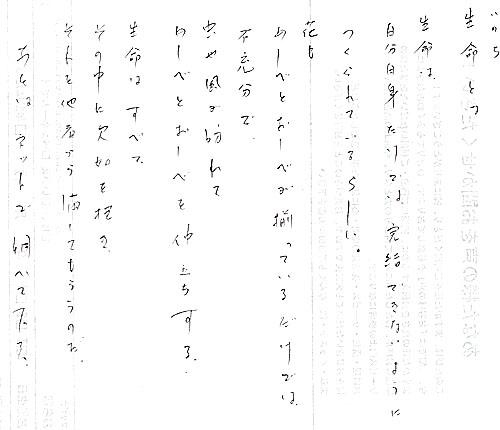 いのち
生命
生命は、
自分自身だけでは、完結できないように
つくられているらしい。
花も
めしべとおしべが揃っているだけでは、
不充分で、
虫や風が訪れて
めしべとおしべを仲立ちする。
生命はすべて、
その中に欠如を抱き、
それを他者から満たしてもらうのだ。
あとはネットで調べて